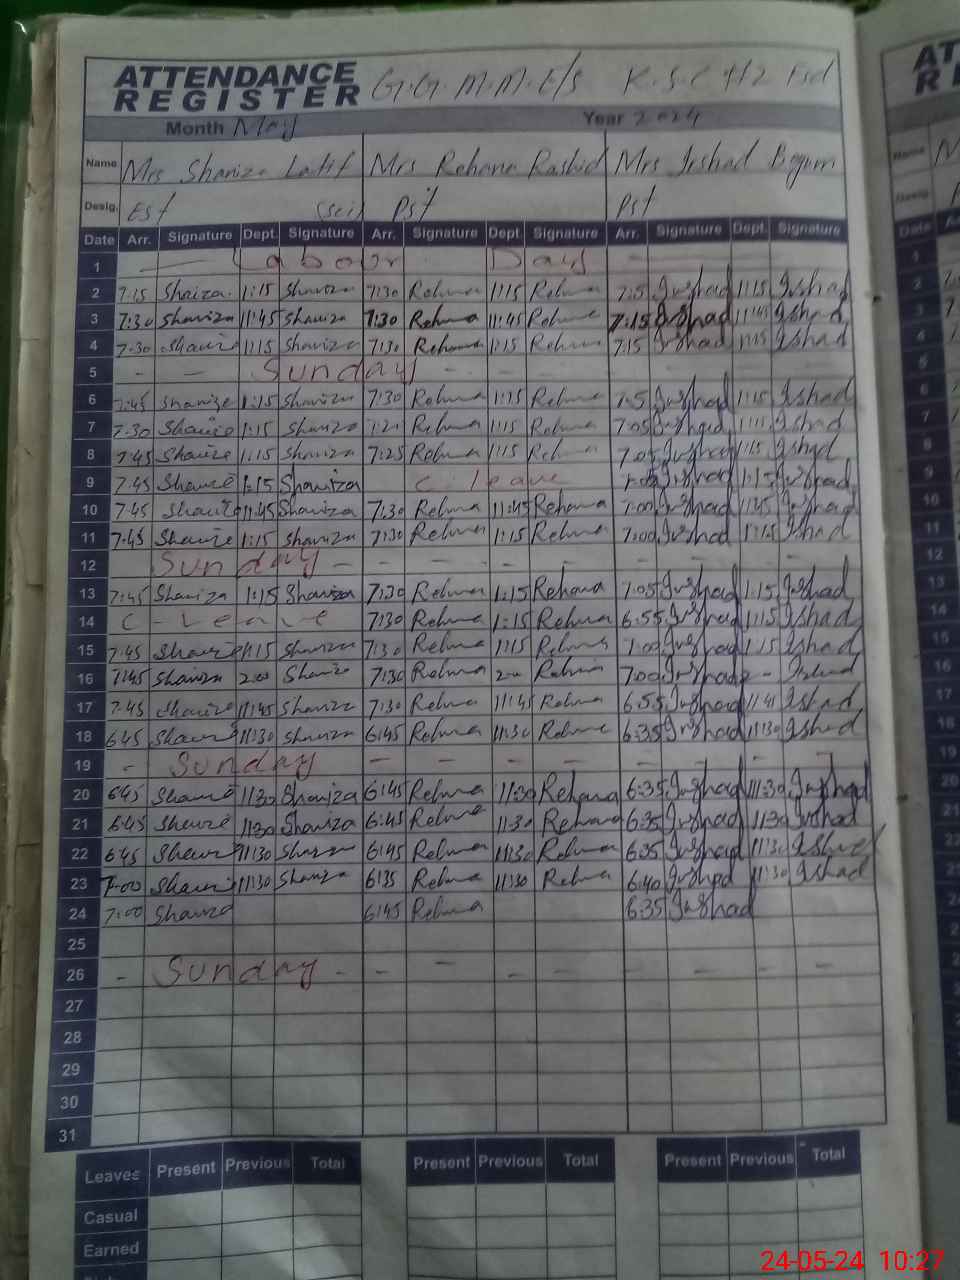 ATTENDANCE G.G.M.M.E/S K.S.C #2 Fsd
REGISTER
Month May Year 2024
Name Mrs Shaniza Latif Mrs Rehana Rashid Mrs Irshad Begum
Desig. Est (sci) Pst Pst
Date Arr. Signature Dept. Signature Arr. Signature Dept. Signature Arr. Signature Dept. Signature
1 Labour Day
2 7:15 Shaiza 1:15 Shaniza 7:30 Rehna 1:15 Rehna Irshad 1:15 Irshad
3 7:30 Shaniza 11:45 Shaniza 7:30 Rehna 11:45 Rehna 7:15 Irshad 11:45 Irshad
4 7:30 Shaniza 1:15 Shaniza 7:30 Rehana 1:15 Rehna 7:15 Irshad 1:15 Irshad
5 - - Sunday - - - - -
6 7:45 Shanize 1:15 Shaniza 7:30 Rehna 1:15 Rehna Irshad 1:15 Irshad
7 7:30 Shanize 1:15 Shaniza Rehna 1:15 Rehna 7:05 Irshad Irshad
8 7:45 Shanize 1:15 Shaniza 7:25 Rehna 1:15 Rehna 7:05 Irshad 1:15 Irshad
9 7:45 Shanize 1:15 Shaniza C. leave Irshad 1:15 Irshad
10 7:45 Shanize 11:45 Shaniza 7:30 Rehna 11:45 Rehana 7:00 Irshad 11:45 Irshad
11 7:45 Shanize 1:15 Shaniza 7:30 Rehna 1:15 Rehna 7:00 Irshad 1:15 Irshad
12 Sunday - - - - - - - - -
13 7:45 Shaniza 1:15 Shaniza 7:30 Rehna 1:15 Rehana 7:05 Irshad 1:15 Irshad
14 C - Leave 7:30 Rehna 1:15 Rehna 6:55 Irshad 1:15 Irshad
15 7:45 Shanize 1:15 Shaniza 7:30 Rehna 1:15 Rehna 7:00 Irshad 1:15 Irshad
16 7:45 Shaniza 2:00 Shanize 7:30 Rehna 2- Rehna 7:00 Irshad 2- Irshad
17 7:45 Shanize 11:45 Shaniza 7:30 Rehna 11:45 Rehna 6:55 Irshad Irshad
18 6:45 Shanize 11:30 Shaniza 6:45 Rehna 11:30 Rehna 6:35 Irshad 11:30 Irshad
19 - Sunday - - - - - - - -
20 6:45 Shanize 11:30 Shaniza 6:45 Rehna 11:30 Rehana 6:35 Irshad 11:30 Irshad
21 6:45 Shanize 11:30 Shaniza 6:45 Rehna 11:30 Rehana 6:35 Irshad 11:30 Irshad
22 6:45 Shanize 11:30 Shaniza 6:45 Rehna 11:30 Rehna 6:35 Irshad 11:30 Irshad
23 7:00 Shanize 11:30 Shaniza 6:35 Rehna 11:30 Rehna 6:40 Irshad 11:30 Irshad
24 7:00 Shaniza 6:45 Rehna 6:35 Irshad
25
26 - Sunday - - - - - - - -
27
28
29
30
31
Leaves Present Previous Total Present Previous Total Present Previous Total
Casual
Earned
24-05-24 10:27